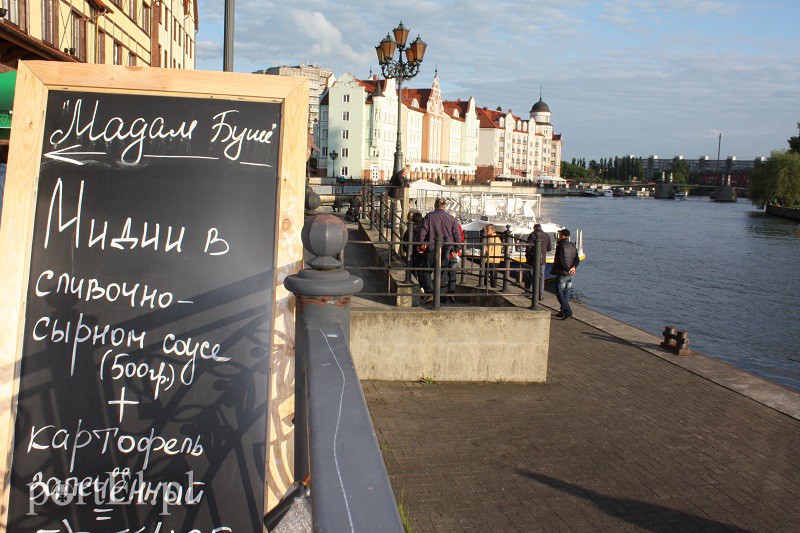 "Мадам Буше"
Мидии в
сливочно-
сырном соусе
(500гр.)
+
картофель
запечённый
=